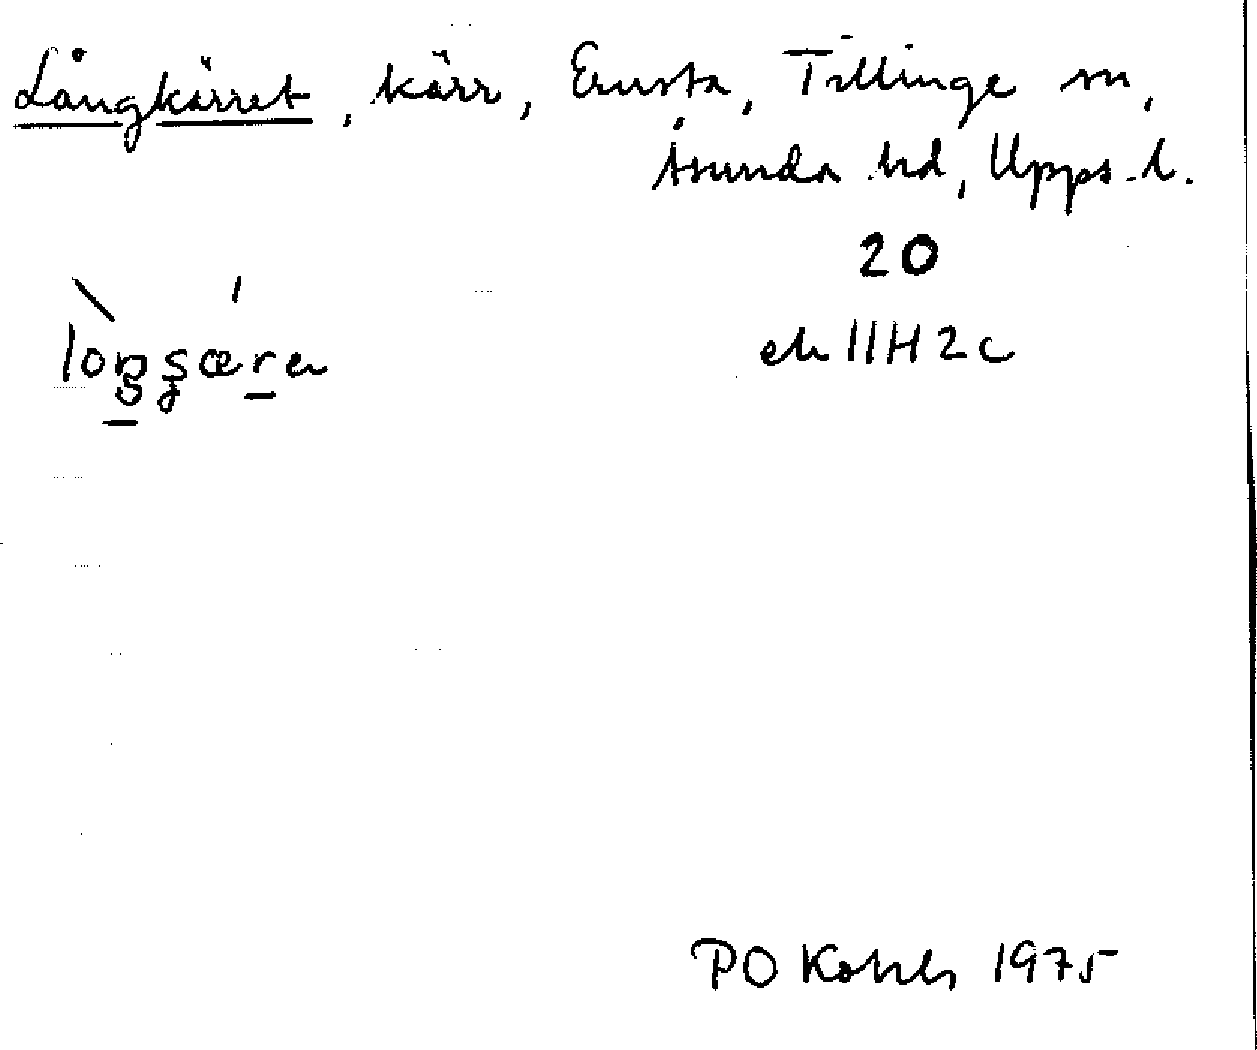 Långkärret, kärr, Ensta, Tillinge sn,
Åsunda hd, Upps. l.
20
ek 11H2c
PO 1975